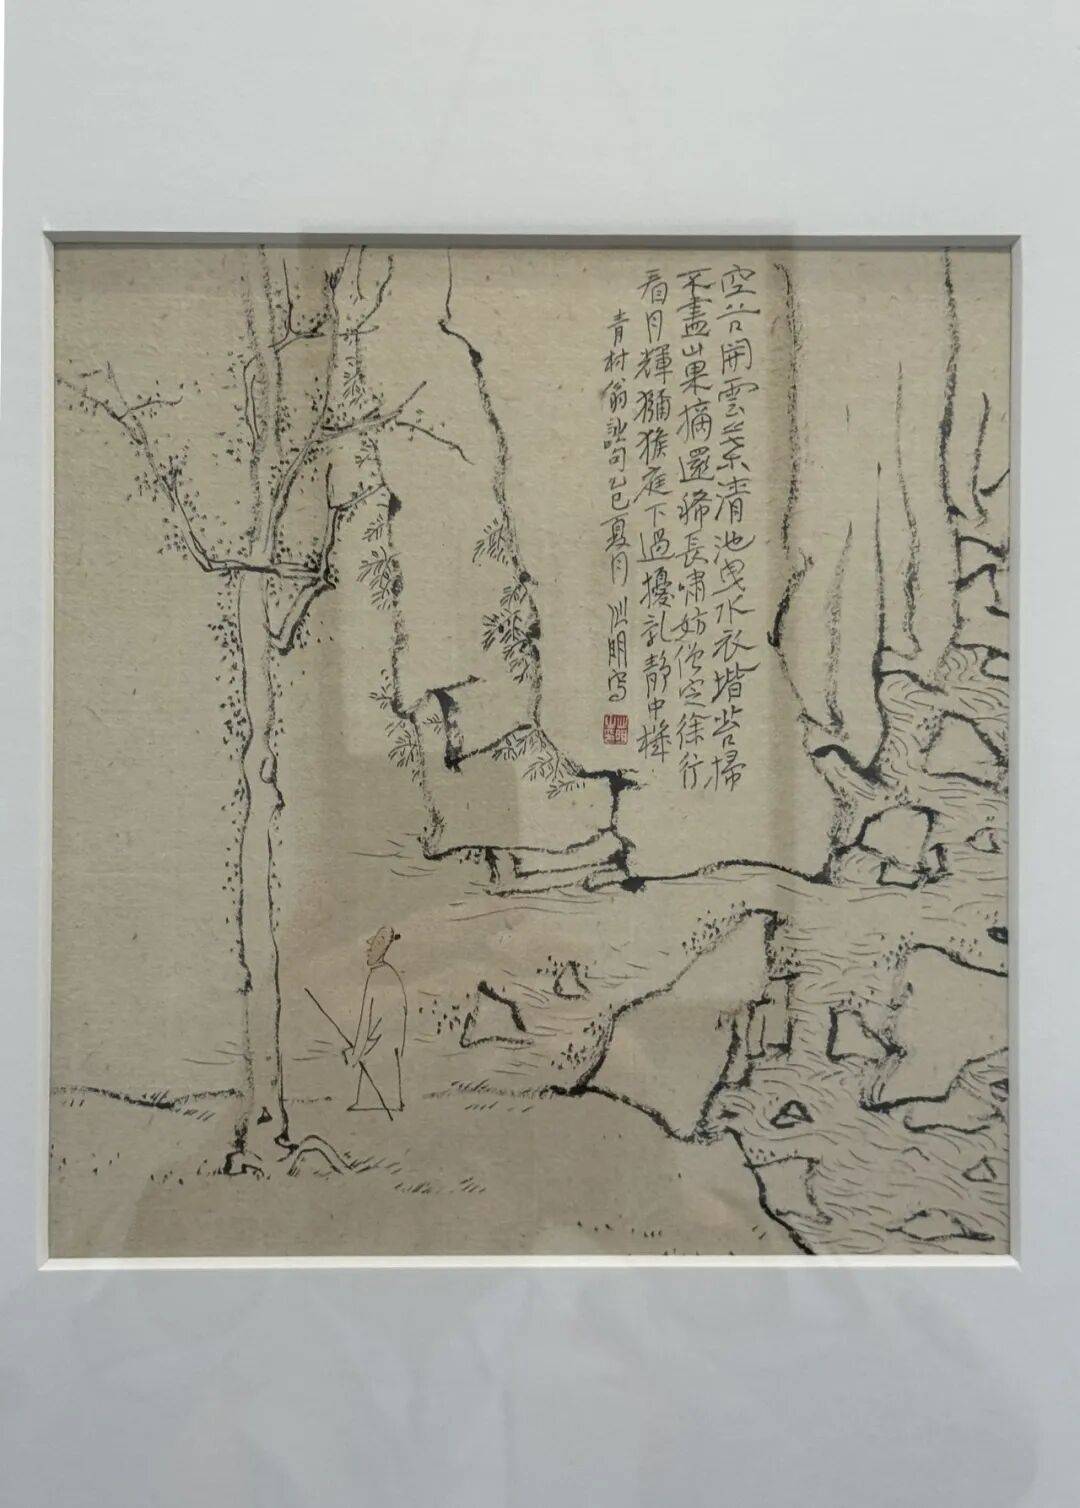 空谷開雲葉清池曳水衣堦苔掃
不盡山果摘還稀長嘯妨僧定徐行
看月輝獼猴庭下過擾亂靜中機
青村翁詩句乙巳夏月 明寫